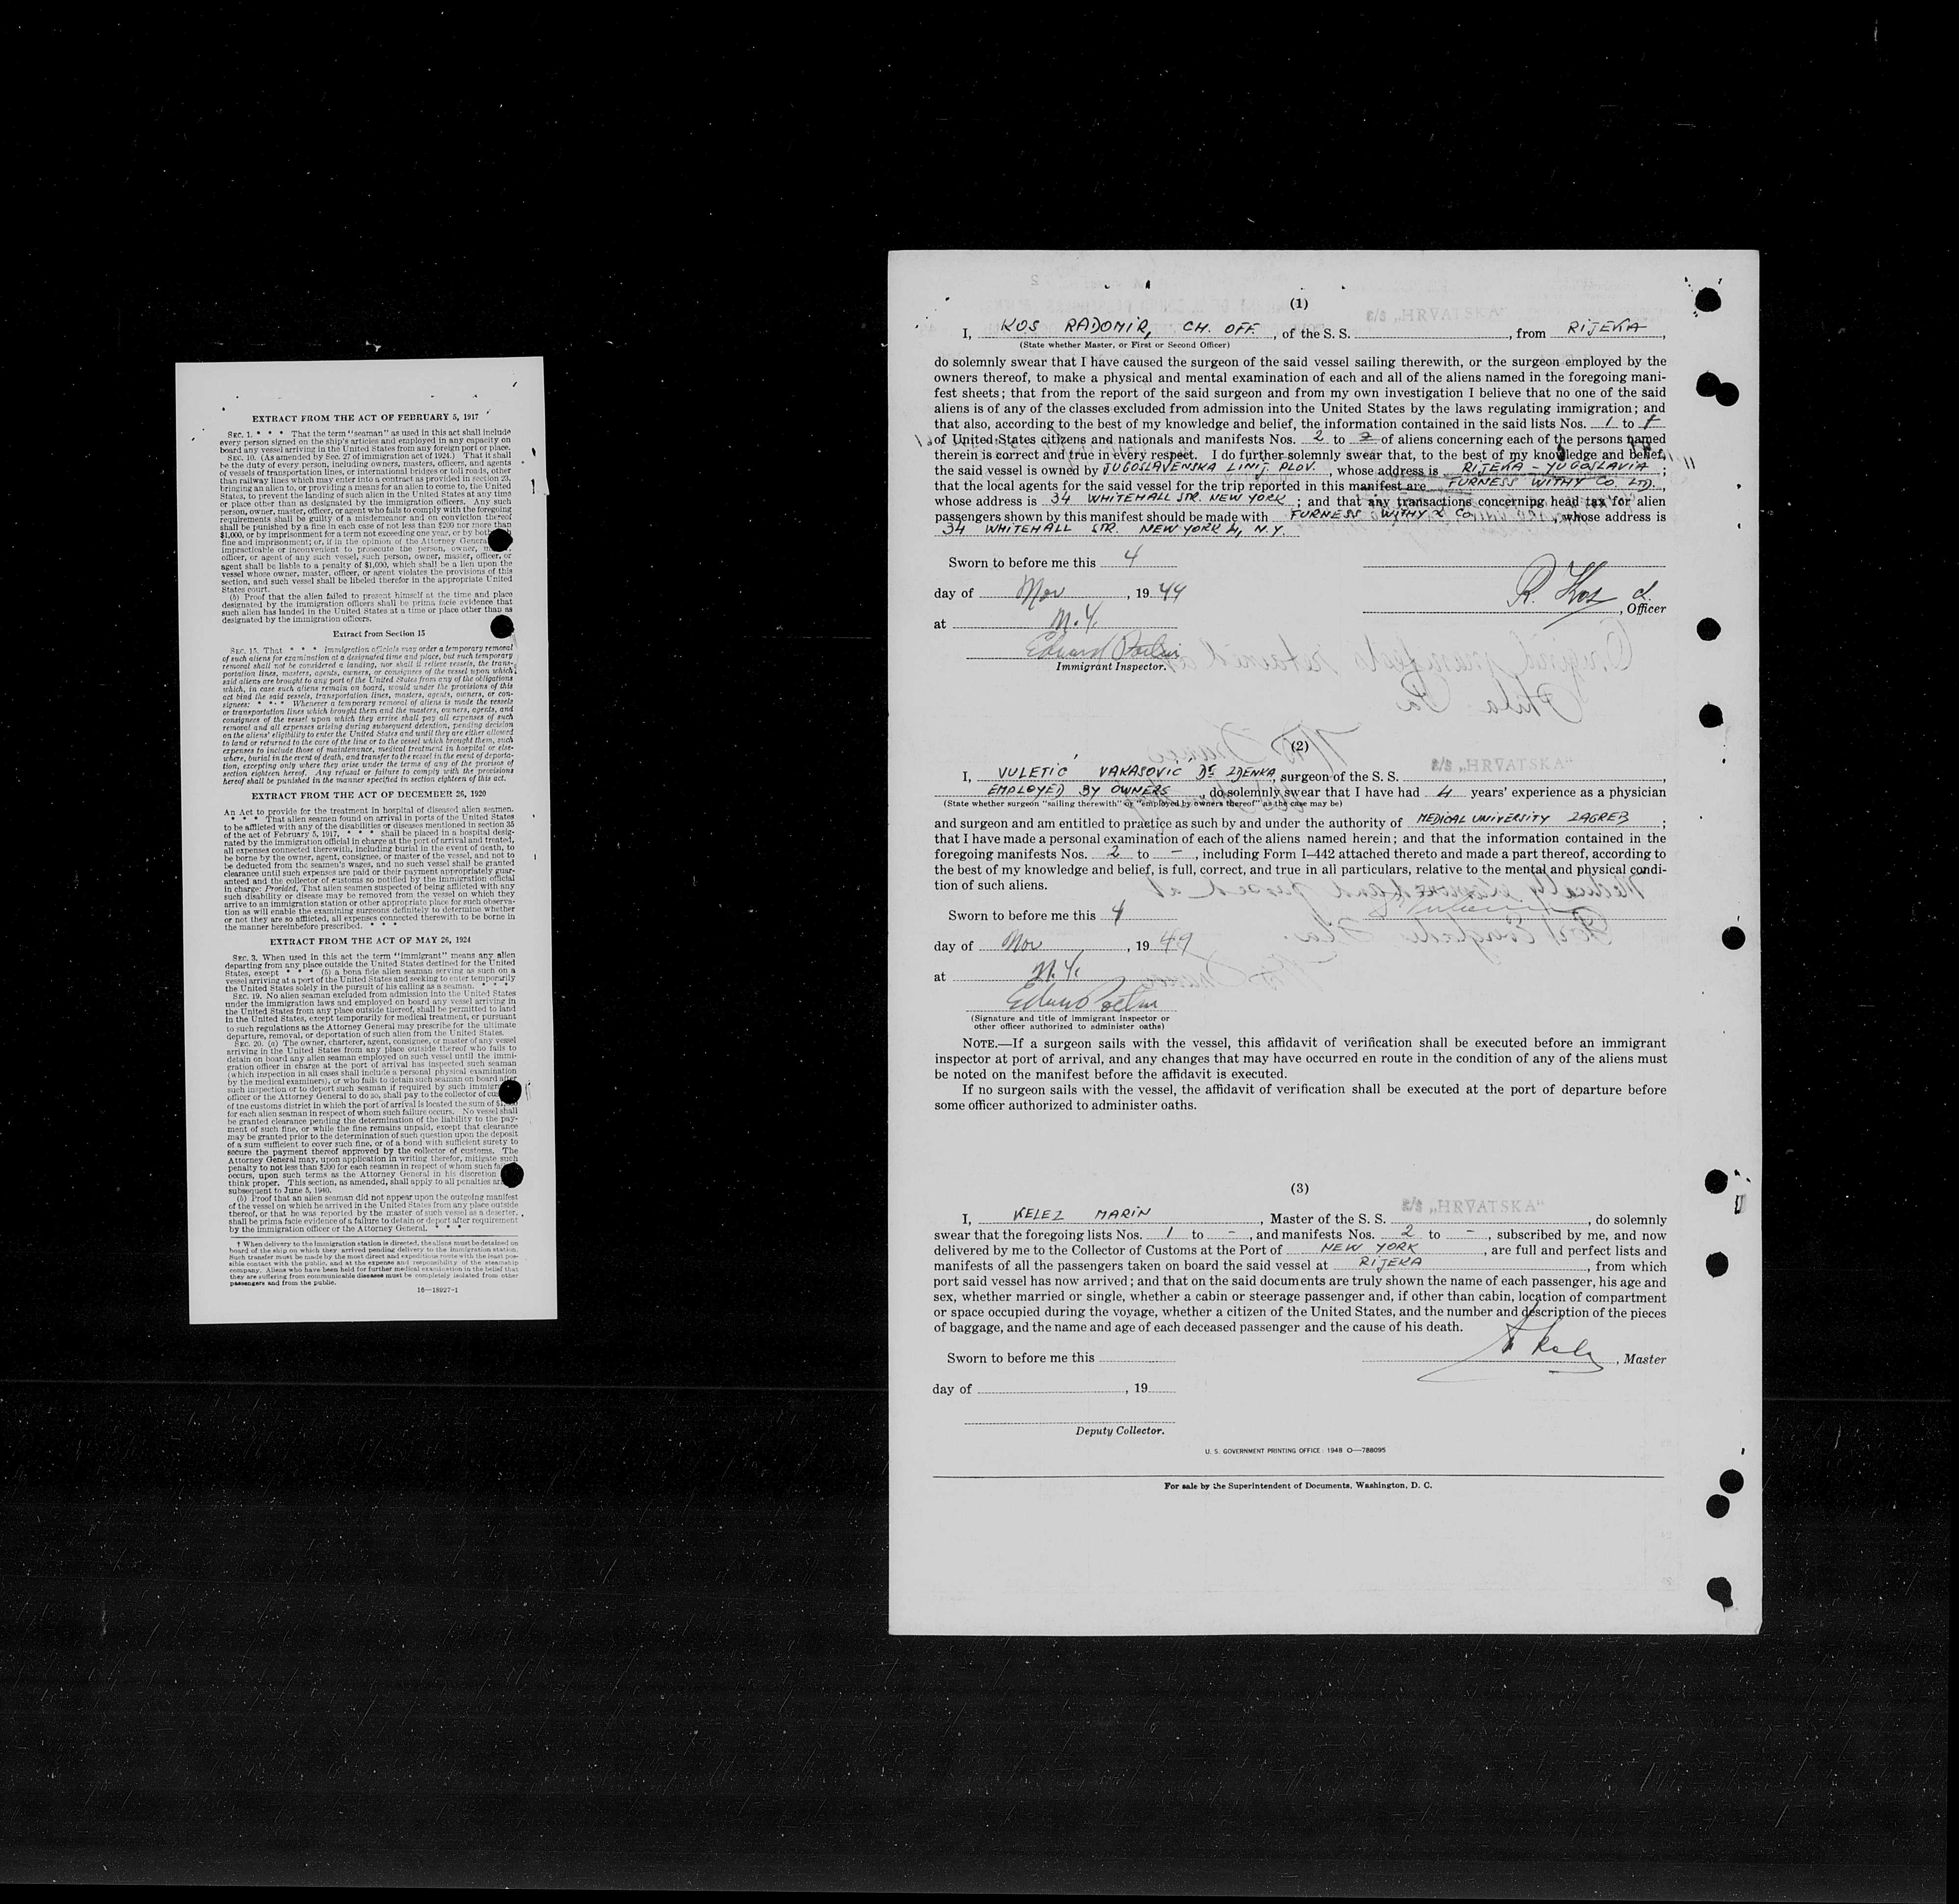 EXTRACT FROM THE ACT OF FEBRUARY 5, 1917
SEC. 1. * * * That the term "seaman" as used in this act shall include
every person signed on the ship's articles and employed in any capacity on
board any vessel arriving in the United States from any foreign port or place.
SEC. 10. (As amended by Sec. 27 of immigration act of 1924.) That it shall
be the duty of every person, including owners, masters, officers, and agents
of vessels of transportation lines, or international bridges or toll roads, other
than railway lines which may enter into a contract as provided in section 23,
bringing an alien to, or providing a means for an alien to come to, the United
States, to prevent the landing of such alien in the United States at any time
or place other than as designated by the immigration officers. Any such
person, owner, master, officer, or agent who fails to comply with the foregoing
requirements shall be guilty of a misdemeanor and on conviction thereof
shall be punished by a fine in each case of not less than $200 nor more than
$1,000, or by imprisonment for a term not exceeding one year, or by both
fine and imprisonment; or, if in the opinion of the Attorney General
impracticable or inconvenient to prosecute the person, owner,
officer, or agent of any such vessel, such person, owner, master, officer, or
agent shall be liable to a penalty of $1,000, which shall be a lien upon the
vessel whose owner, master, officer, or agent violates the provisions of this
section, and such vessel shall be libeled therefor in the appropriate United
States court.
(b) Proof that the alien failed to present himself at the time and place
designated by the immigration officers shall be prima facie evidence that
such alien has landed in the United States at a time or place other than as
designated by the immigration officers.
Extract from Section 15
SEC. 15. That * * * immigration officials may order a temporary removal
of such aliens for examination at a designated time and place, but such temporary
removal shall not be considered a landing, nor shall it relieve vessels, the trans-
portation lines, masters, agents, owners, or consignees of the vessel upon which
said aliens are brought to any port of the United States from any of the obligations
which, in case such aliens remain on board, would under the provisions of this
act bind the said vessels, transportation lines, masters, agents, owners, or con-
signees: * * * Whenever a temporary removal of aliens is made the vessels
or transportation lines which brought them and the masters, owners, agents, and
consignees of the vessel upon which they arrive shall pay all expenses of such
removal and all expenses arising during subsequent detention, pending decision
on the aliens' eligibility to enter the United States and until they are either allowed
to land or returned to the care of the line or to the vessel which brought them, such
expenses to include those of maintenance, medical treatment in hospital or else-
where, burial in the event of death, and transfer to the vessel in the event of deporta-
tion, excepting only where they arise under the terms of any of the provisos of
section eighteen hereof. Any refusal or failure to comply with the provisions
hereof shall be punished in the manner specified in section eighteen of this act.
EXTRACT FROM THE ACT OF DECEMBER 26, 1920
An Act to provide for the treatment in hospital of diseased alien seamen.
* * * That alien seamen found on arrival in ports of the United States
to be afflicted with any of the disabilities or diseases mentioned in section 35
of the act of February 5, 1917, * * * shall be placed in a hospital desig-
nated by the immigration official in charge at the port of arrival and treated,
all expenses connected therewith, including burial in the event of death, to
be borne by the owner, agent, consignee, or master of the vessel, and not to
be deducted from the seamen's wages, and no such vessel shall be granted
clearance until such expenses are paid or their payment appropriately guar-
anteed and the collector of customs so notified by the immigration official
in charge: Provided, That alien seamen suspected of being afflicted with any
such disability or disease may be removed from the vessel on which they
arrive to an immigration station or other appropriate place for such observa-
tion as will enable the examining surgeons definitely to determine whether
or not they are so afflicted, all expenses connected therewith to be borne in
the manner hereinbefore prescribed. * * *
EXTRACT FROM THE ACT OF MAY 26, 1924
SEC. 3. When used in this act the term "immigrant" means any alien
departing from any place outside the United States destined for the United
States, except * * * (5) a bona fide alien seaman serving as such on a
vessel arriving at a port of the United States and seeking to enter temporarily
the United States solely in the pursuit of his calling as a seaman. * * *
SEC. 19. No alien seaman excluded from admission into the United States
under the immigration laws and employed on board any vessel arriving in
the United States from any place outside thereof, shall be permitted to land
in the United States, except temporarily for medical treatment, or pursuant
to such regulations as the Attorney General may prescribe for the ultimate
departure, removal, or deportation of such alien from the United States.
SEC. 20. (a) The owner, charterer, agent, consignee, or master of any vessel
arriving in the United States from any place outside thereof who fails to
detain on board any alien seaman employed on such vessel until the immi-
gration officer in charge at the port of arrival has inspected such seaman
(which inspection in all cases shall include a personal physical examination
by the medical examiners), or who fails to detain such seaman on board after
such inspection or to deport such seaman if required by such
officer or the Attorney General to do so, shall pay to the collector of
of the customs district in which the port of arrival is located the sum of
for each alien seaman in respect of whom such failure occurs. No vessel shall
be granted clearance pending the determination of the liability to the pay-
ment of such fine, or while the fine remains unpaid, except that clearance
may be granted prior to the determination of such question upon the deposit
of a sum sufficient to cover such fine, or of a bond with sufficient surety to
secure the payment thereof approved by the collector of customs. The
Attorney General may, upon application in writing therefor, mitigate such
penalty to not less than $200 for each seaman in respect of whom such
occurs, upon such terms as the Attorney General in his discretion
think proper. This section, as amended, shall apply to all penalties
subsequent to June 5, 1940.
(b) Proof that an alien seaman did not appear upon the outgoing manifest
of the vessel on which he arrived in the United States from any place outside
thereof, or that he was reported by the master of such vessel as a deserter,
shall be prima facie evidence of a failure to detain or deport after requirement
by the immigration officer or the Attorney General. * * *
† When delivery to the immigration station is directed, the aliens must be detained on
board of the ship on which they arrived pending delivery to the immigration station.
Such transfer must be made by the most direct and expeditious route with the least pos-
sible contact with the public, and at the expense and responsibility of the steamship
company. Aliens who have been held for further medical examination in the belief that
they are suffering from communicable diseases must be completely isolated from other
passengers and from the public.
16—18927-1
(1)
I, KOS RADOMIR, CH. OFF., of the S. S. S/S „HRVATSKA", from RIJEKA,
(State whether Master, or First or Second Officer)
do solemnly swear that I have caused the surgeon of the said vessel sailing therewith, or the surgeon employed by the
owners thereof, to make a physical and mental examination of each and all of the aliens named in the foregoing mani-
fest sheets; that from the report of the said surgeon and from my own investigation I believe that no one of the said
aliens is of any of the classes excluded from admission into the United States by the laws regulating immigration; and
that also, according to the best of my knowledge and belief, the information contained in the said lists Nos. 1 to 1
of United States citizens and nationals and manifests Nos. 2 to 2 of aliens concerning each of the persons named
therein is correct and true in every respect. I do further solemnly swear that, to the best of my knowledge and belief,
the said vessel is owned by JUGOSLAVENSKA LINIJ. PLOV., whose address is RIJEKA - YUGOSLAVIA;
that the local agents for the said vessel for the trip reported in this manifest are FURNESS WITHY CO. LTD.,
whose address is 34 WHITEHALL STR. NEW YORK; and that any transactions concerning head tax for alien
passengers shown by this manifest should be made with FURNESS WITHY & CO, whose address is
34 WHITEHALL STR. NEW YORK 4, N.Y.
Sworn to before me this 4
day of Nov, 1949
R. Kos, Officer
at N.Y.
Immigrant Inspector.
(2)
I, VULETIĆ VAKASOVIĆ Dr ZDENKA, surgeon of the S. S. S/S „HRVATSKA",
EMPLOYED BY OWNERS, do solemnly swear that I have had 4 years' experience as a physician
(State whether surgeon "sailing therewith" or "employed by owners thereof" as the case may be)
and surgeon and am entitled to practice as such by and under the authority of MEDICAL UNIVERSITY ZAGREB;
that I have made a personal examination of each of the aliens named herein; and that the information contained in the
foregoing manifests Nos. 2 to -, including Form I-442 attached thereto and made a part thereof, according to
the best of my knowledge and belief, is full, correct, and true in all particulars, relative to the mental and physical condi-
tion of such aliens.
Sworn to before me this 4
day of Nov, 1949
at N.Y.
(Signature and title of immigrant inspector or
other officer authorized to administer oaths)
NOTE.—If a surgeon sails with the vessel, this affidavit of verification shall be executed before an immigrant
inspector at port of arrival, and any changes that may have occurred en route in the condition of any of the aliens must
be noted on the manifest before the affidavit is executed.
If no surgeon sails with the vessel, the affidavit of verification shall be executed at the port of departure before
some officer authorized to administer oaths.
(3)
I, KELEZ MARIN, Master of the S. S. S/S „HRVATSKA", do solemnly
swear that the foregoing lists Nos. 1 to -, and manifests Nos. 2 to -, subscribed by me, and now
delivered by me to the Collector of Customs at the Port of NEW YORK, are full and perfect lists and
manifests of all the passengers taken on board the said vessel at RIJEKA, from which
port said vessel has now arrived; and that on the said documents are truly shown the name of each passenger, his age and
sex, whether married or single, whether a cabin or steerage passenger and, if other than cabin, location of compartment
or space occupied during the voyage, whether a citizen of the United States, and the number and description of the pieces
of baggage, and the name and age of each deceased passenger and the cause of his death.
Sworn to before me this
, Master
day of , 19
Deputy Collector.
U. S. GOVERNMENT PRINTING OFFICE: 1948 O—788095
For sale by the Superintendent of Documents, Washington, D. C.